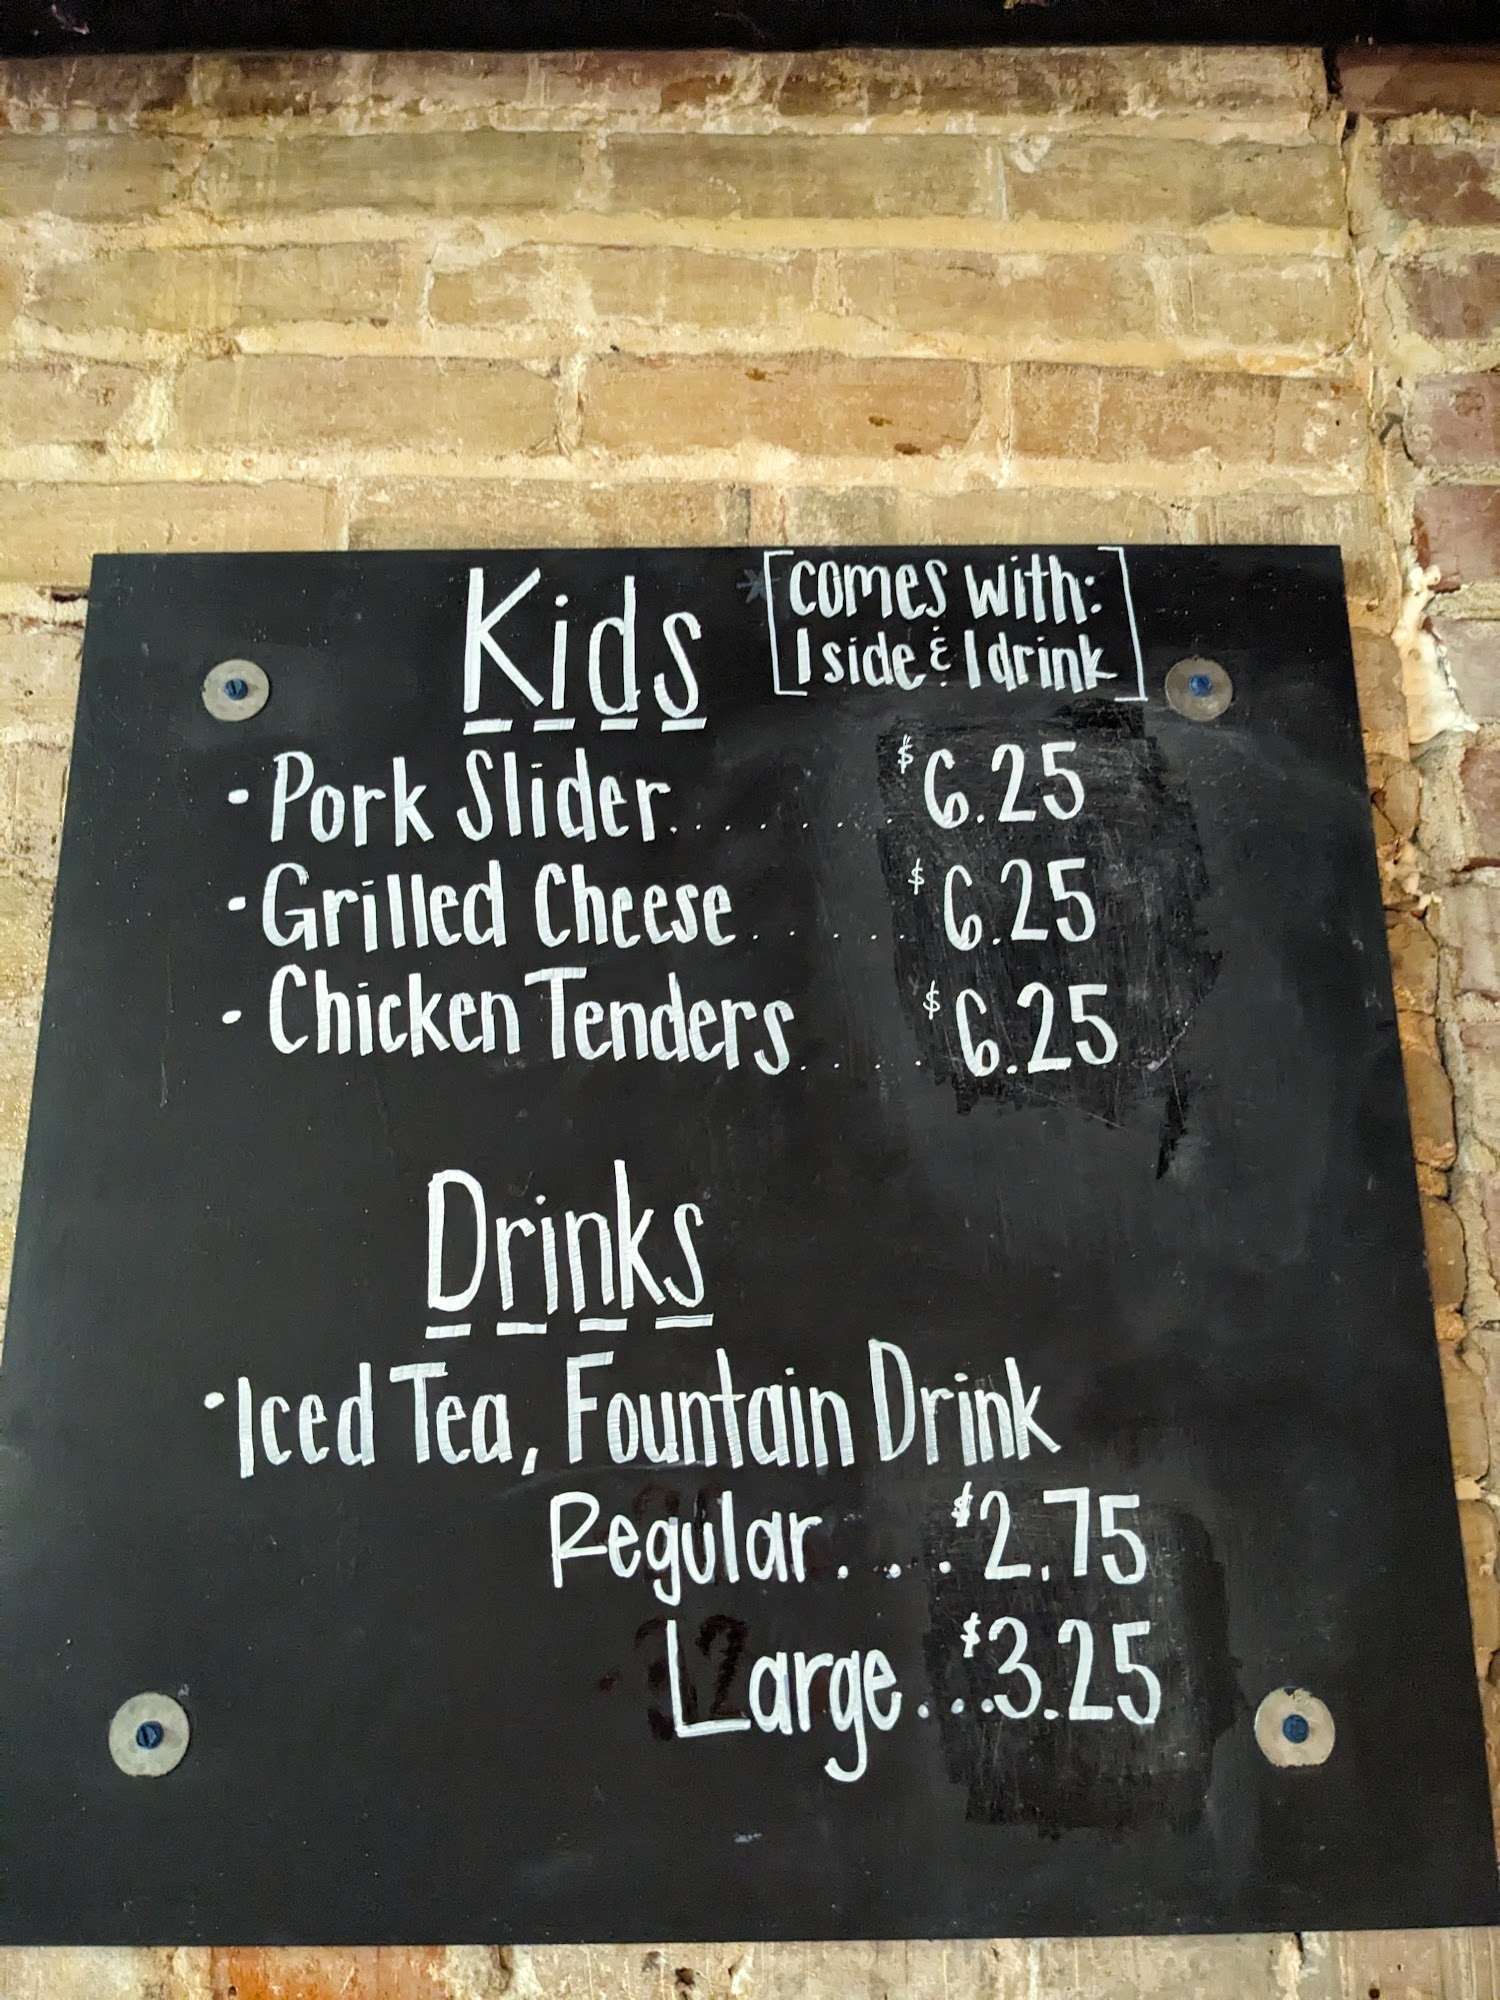 Kids
*[comes with:
1 side & 1 drink]
• Pork Slider........ $6.25
• Grilled Cheese...... $6.25
• Chicken Tenders.... $6.25
Drinks
• Iced Tea, Fountain Drink
Regular.... $2.75
Large... $3.25